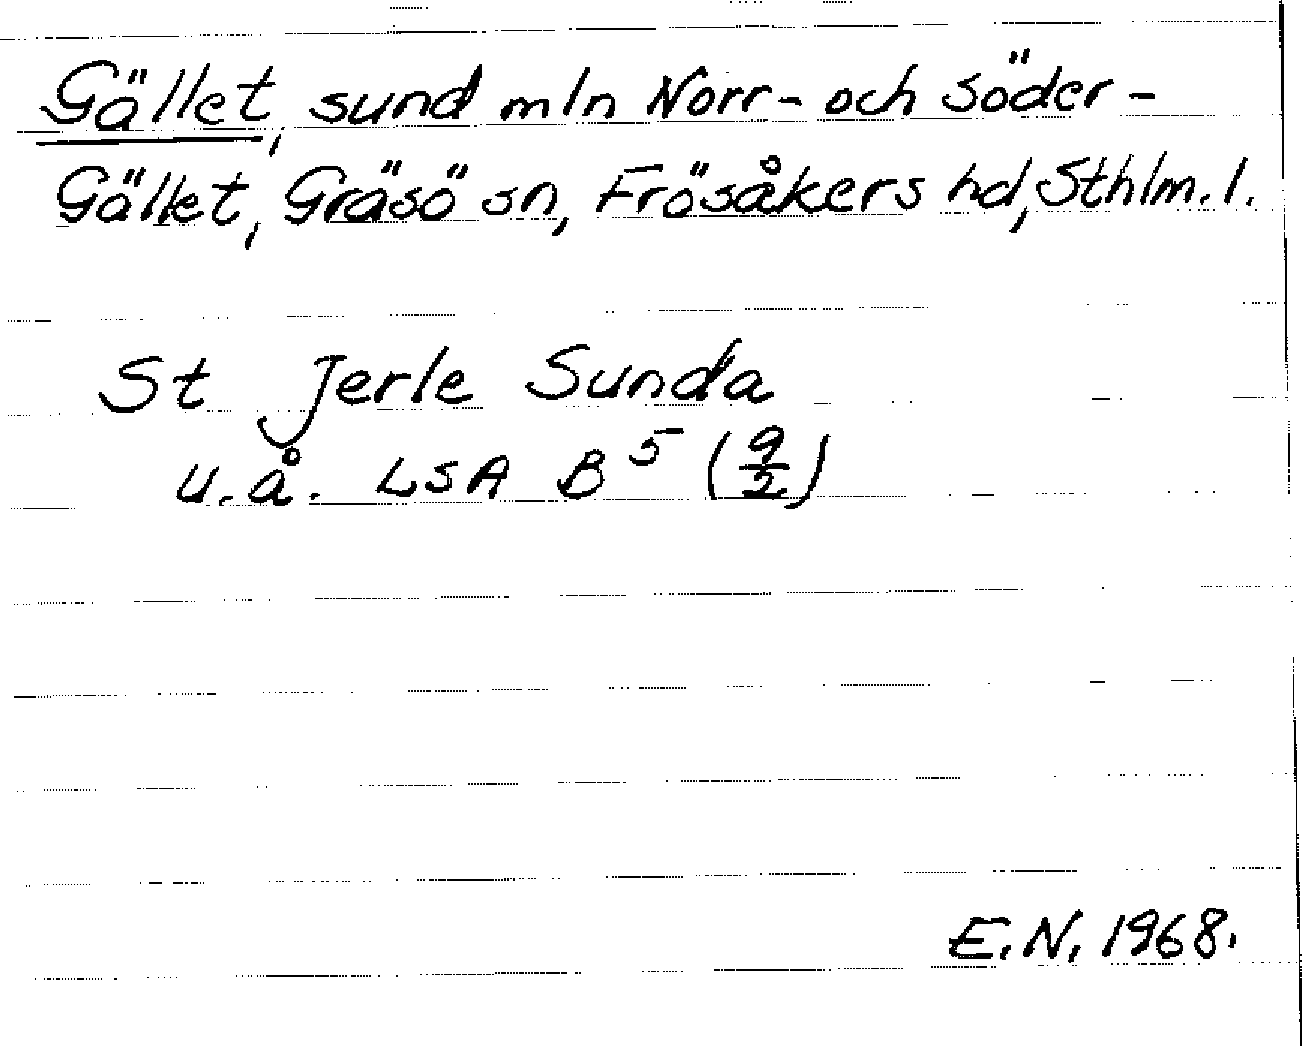 Gället, sund mln Norr- och Söder-
Gället, Gräsö sn, Frösåkers hd, Sthlm. l.
St Jerle Sunda
u.å. LSA B 5 (9/2)
E.N. 1968.